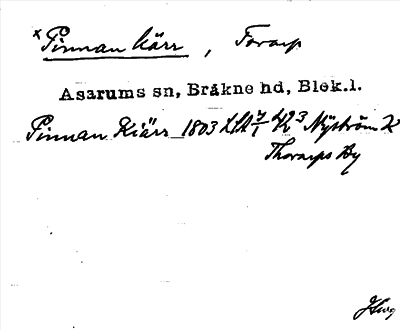 x Pinnan kärr, Torarp
Asarums sn, Bräkne hd, Blek.l.
Pinnan Kiärr 1803 Nyström K
Thorarps By